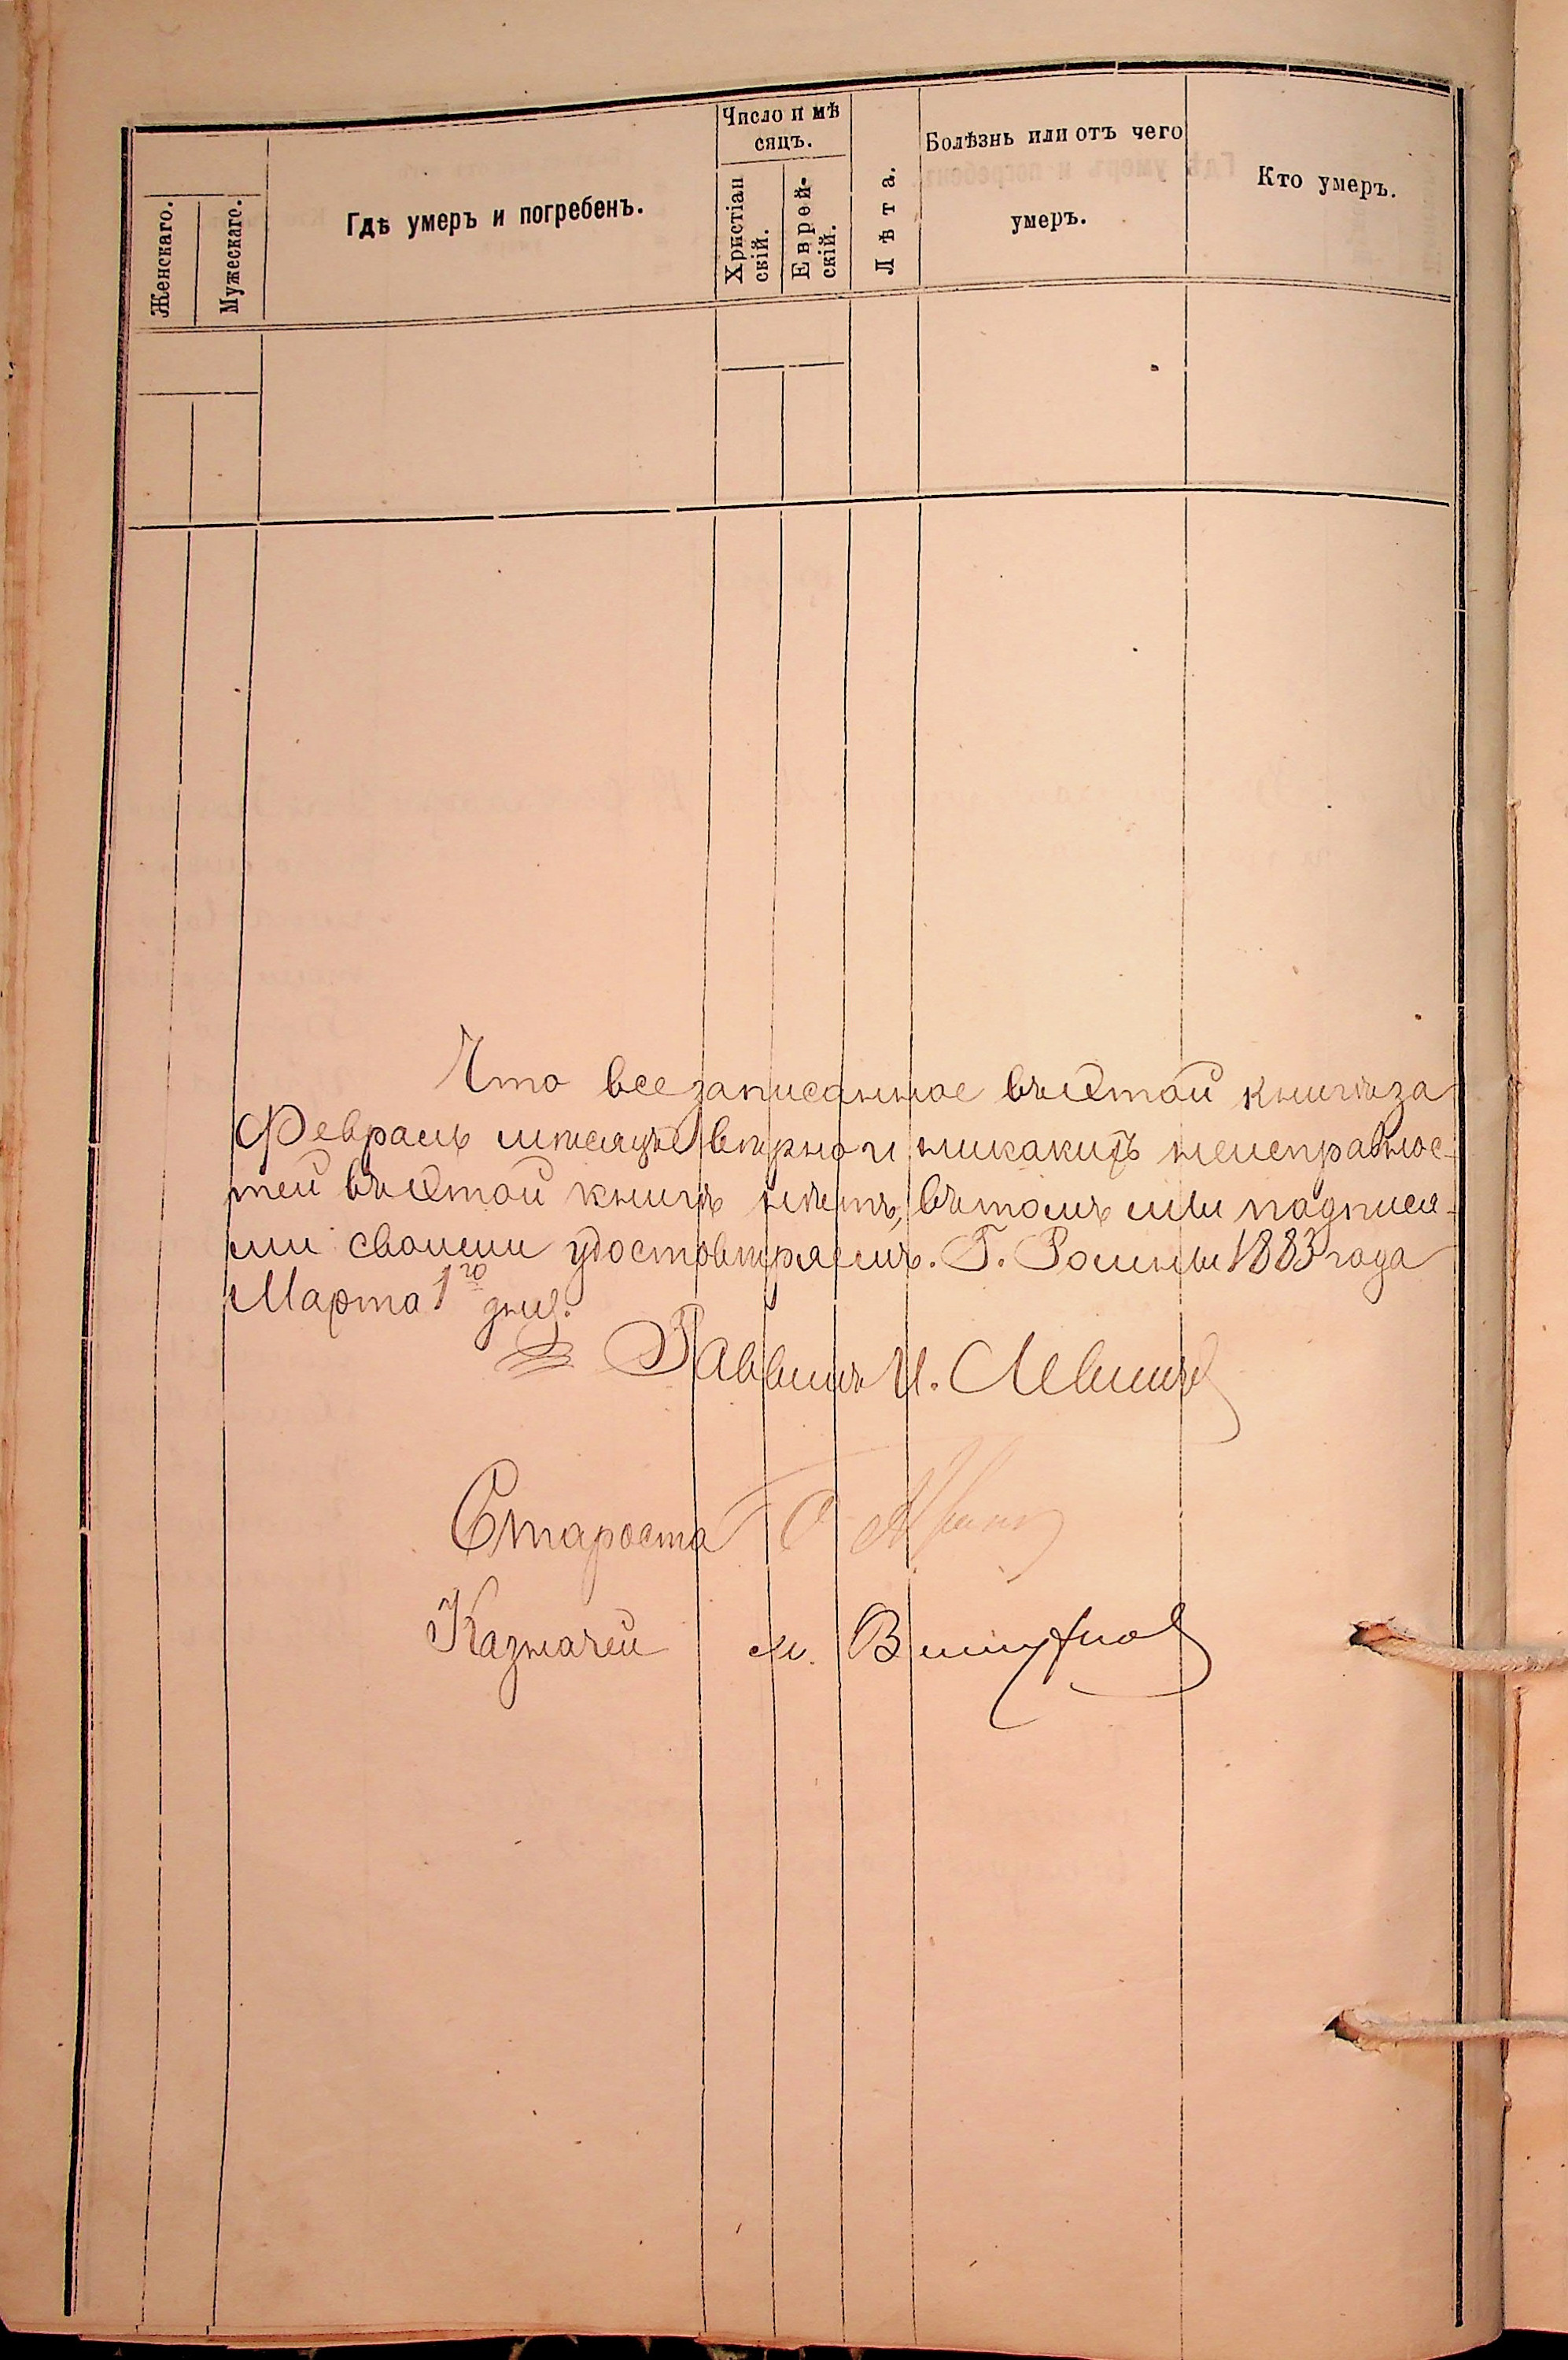 Число и мѣ
сяцъ.
Женскаго.
Мужескаго.
Гдѣ умеръ и погребенъ.
Христіан
скій.
Еврей-
скій.
Лѣта.
Болѣзнь или отъ чего
умеръ.
Кто умеръ.
Что все записанное въ этой книгѣ за
Февраль мѣсяцъ вѣрно и никакихъ неисправнос-
тей въ этой книгѣ нѣтъ, въ томъ мы подпися-
ми своими удостовѣряемъ. Г. Ромны 1883 года
Марта 1го дня.
Раввинъ И. Левинъ
Староста
Казначей м.